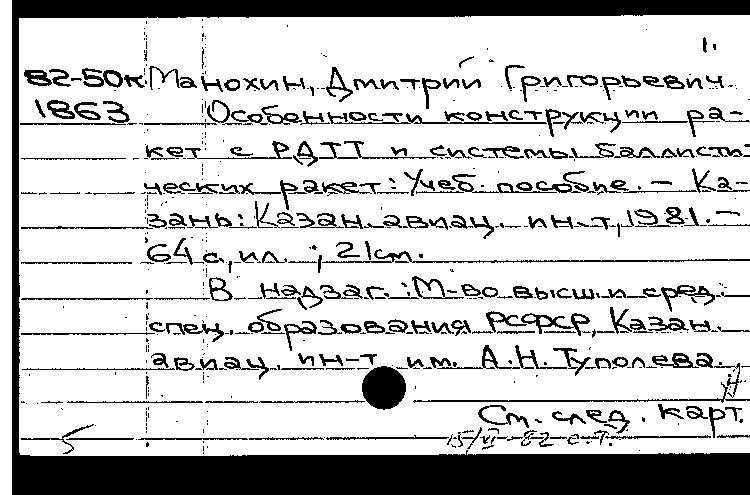 1.
82-50к Манохин, Дмитрий Григорьевич.
1863 Особенности конструкции ра-
кет с РДТТ и системы баллисти-
ческих ракет: Учеб. пособие. – Ка-
зань: Казан. авиац. ин-т, 1981. –
64 с., ил. ; 21 см.
В надзаг.: М-во высш. и сред.
спец. образования РСФСР, Казан.
авиац. ин-т им. А.Н. Туполева.
См. след. карт.
5 15/VI-82 с.т.